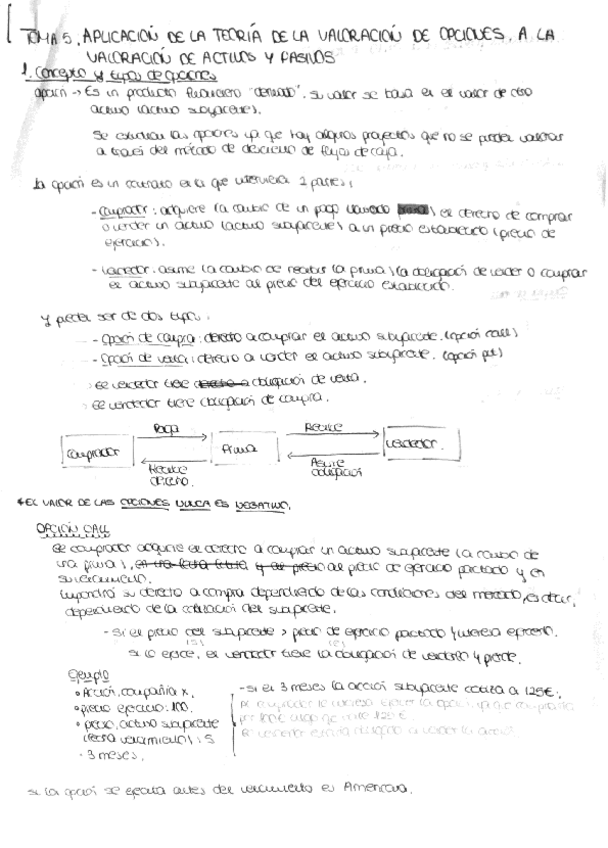 TEMA 5. APLICACIÓN DE LA TEORÍA DE LA VALORACIÓN DE OPCIONES, A LA
VALORACIÓN DE ACTIVOS Y PASIVOS
1. Concepto y tipos de opciones
opción → Es un producto financiero "derivado". su valor se basa en el valor de otro
activo (activo subyacente).
Se estudian las opciones ya que hay algunos proyectos que no se pueden valorar
a través del método de descuento de flujos de caja.
La opción es un contrato en la que intervienen 2 partes:
- Comprador: adquiere (a cambio de un pago llamado prima) el derecho de comprar
o vender un activo (activo subyacente) a un precio establecido (precio de
ejercicio).
- Vendedor: asume (a cambio de recibir la prima) la obligación de vender o comprar
el activo subyacente al precio del ejercicio establecido.
Y pueden ser de dos tipos:
- Opción de compra: derecho a comprar el activo subyacente. (opción call)
- Opción de venta: derecho a vender el activo subyacente. (opción put)
el vendedor tiene derecho a obligación de venta.
el vendedor tiene obligación de compra.
Paga Recibe
Comprador Prima Vendedor.
Recibe derecho. Asume obligación
*EL VALOR DE LAS OPCIONES NUNCA ES NEGATIVO.
OPCIÓN CALL
El comprador adquiere el derecho a comprar un activo subyacente (a cambio de
una prima), en una fecha futura y al precio al precio de ejercicio pactado y en
su vencimiento.
su derecho a compra dependiendo de las condiciones del mercado, es decir,
dependiendo de la cotización del subyacente.
- Si el precio del subyacente > precio de ejercicio pactado, interesa ejercerlo.
(S) (E)
si lo ejerce, el vendedor tiene la obligación de venderlo y pierde.
Ejemplo
• Acción, compañía X.
• precio ejercicio: 100.
• precio, activo subyacente
(fecha vencimiento): S
- 3 meses.
- Si en 3 meses la acción subyacente cotiza a 125€:
Al comprador le interesa ejercer la opción, ya que compraría
por 100€ algo que vale 125€.
El vendedor estaría obligado a vender la acción.
Si la opción se ejecuta antes del vencimiento es Americana.